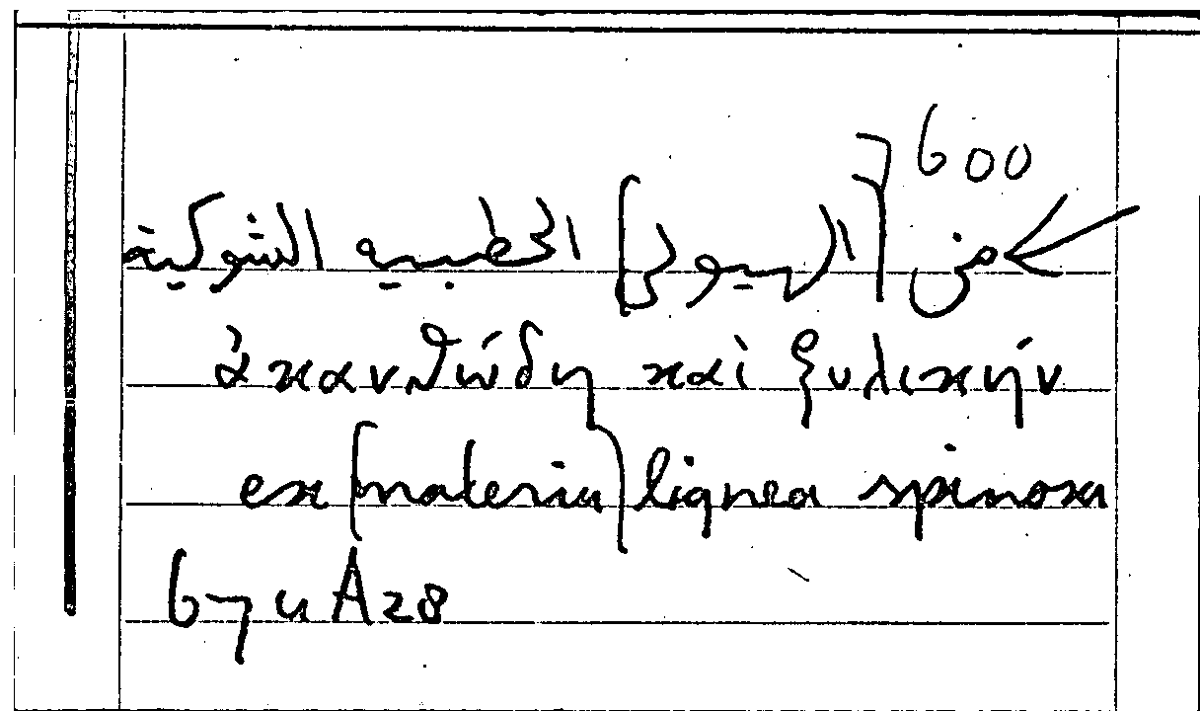 600
من [الهيولى] الخطبيه الشوكية
ἀκανθώδη καὶ ξυλικήν
ex [materia] lignea spinosa
67 u A 28